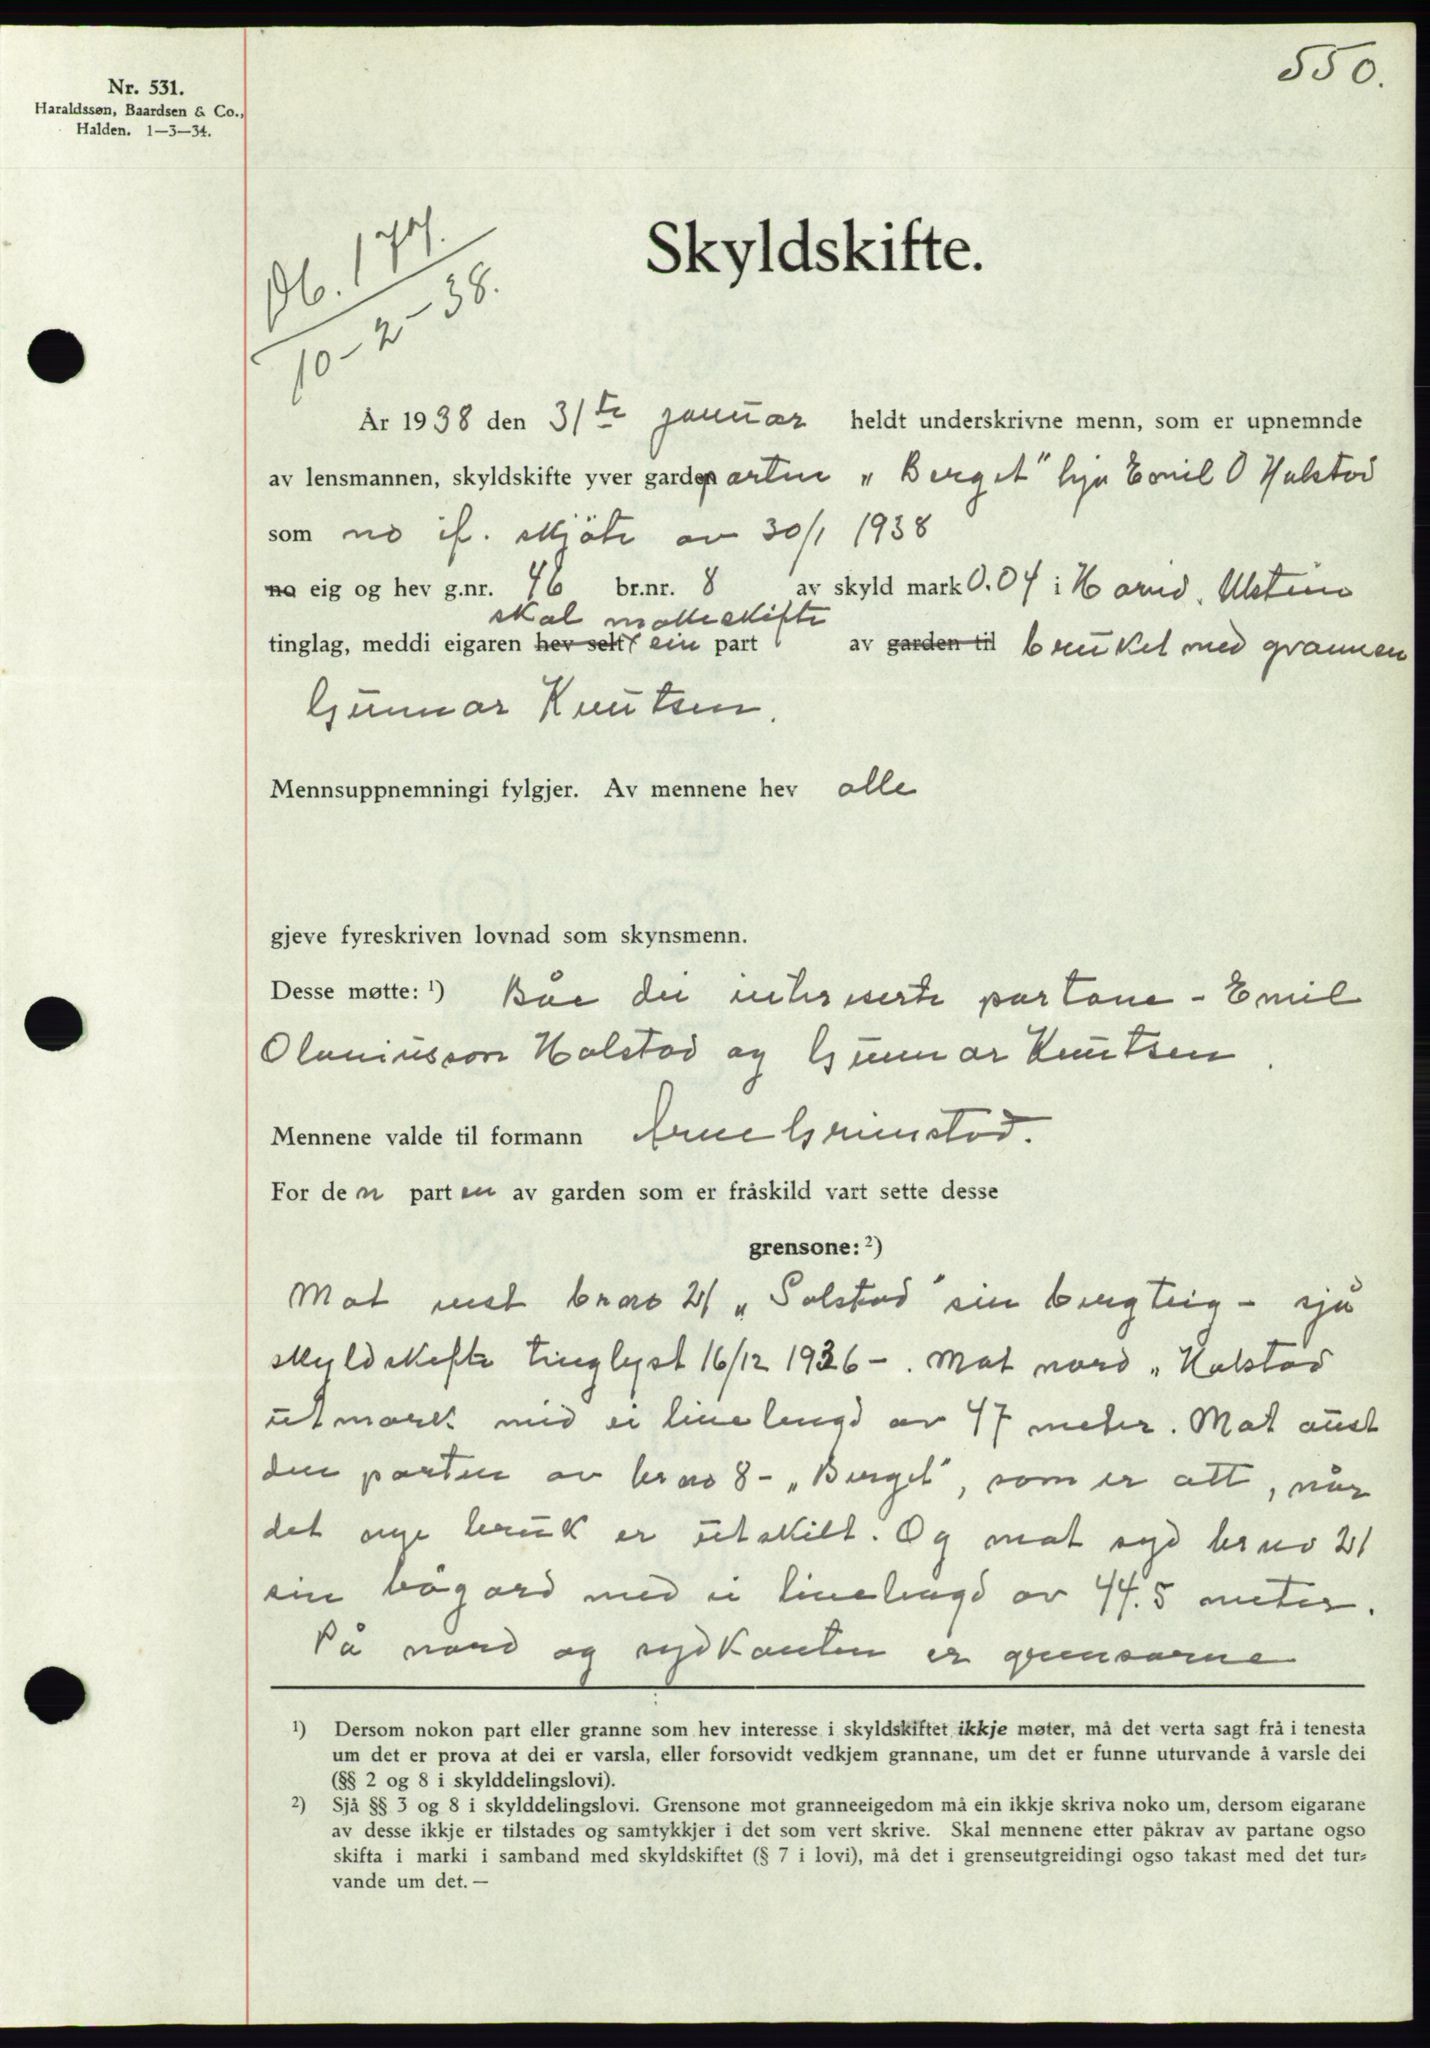 550.
Nr. 531.
Haraldssøn, Baardsen & Co.,
Halden. 1—3—34.
Db. 177.
10-2-38.
Skyldskifte.
År 1938 den 31te januar heldt underskrivne menn, som er upnemnde
av lensmannen, skyldskifte yver gardparten „Berget" hjå Emil O Halstad
som no if. skjöte av 30/1 1938
no eig og hev g.nr. 46 br.nr. 8 av skyld mark 0.04 i Hareid, Ulstein
skal makeskifte
tinglag, meddi eigaren hev selt ein part av garden til bruket med grannen
Gunnar Knutsen.
Mennsuppnemningi fylgjer. Av mennene hev alle
gjeve fyreskriven lovnad som skynsmenn.
Desse møtte: ¹) Båe dei interserte partane - Emil
Olaniusson Halstad og Gunnar Knutsen.
Mennene valde til formann Arne Grimstad.
For den parten av garden som er fråskild vart sette desse
grensone: ²)
Mot vest br no 21 „Solstad" sin bergteig - sjå
skyldskifte tinglyst 16/12 1936 -. Mot nord „Halstad
utmark med ei linelengd av 47 meter. Mot aust
den parten av br no 8 - „Berget", som er att, når
det nye bruk er utskilt. Og mot syd br no 21
sin bögard med ei linelengd av 44.5 meter.
På nord og sydkanten er grensarne
¹) Dersom nokon part eller granne som hev interesse i skyldskiftet ikkje møter, må det verta sagt frå i tenesta
um det er prova at dei er varsla, eller forsovidt vedkjem grannane, um det er funne uturvande å varsle dei
(§§ 2 og 8 i skylddelingslovi).
²) Sjå §§ 3 og 8 i skylddelingslovi. Grensone mot granneeigedom må ein ikkje skriva noko um, dersom eigarane
av desse ikkje er tilstades og samtykkjer i det som vert skrive. Skal mennene etter påkrav av partane ogso
skifta i marki i samband med skyldskiftet (§ 7 i lovi), må det i grenseutgreidingi ogso takast med det tur-
vande um det. —